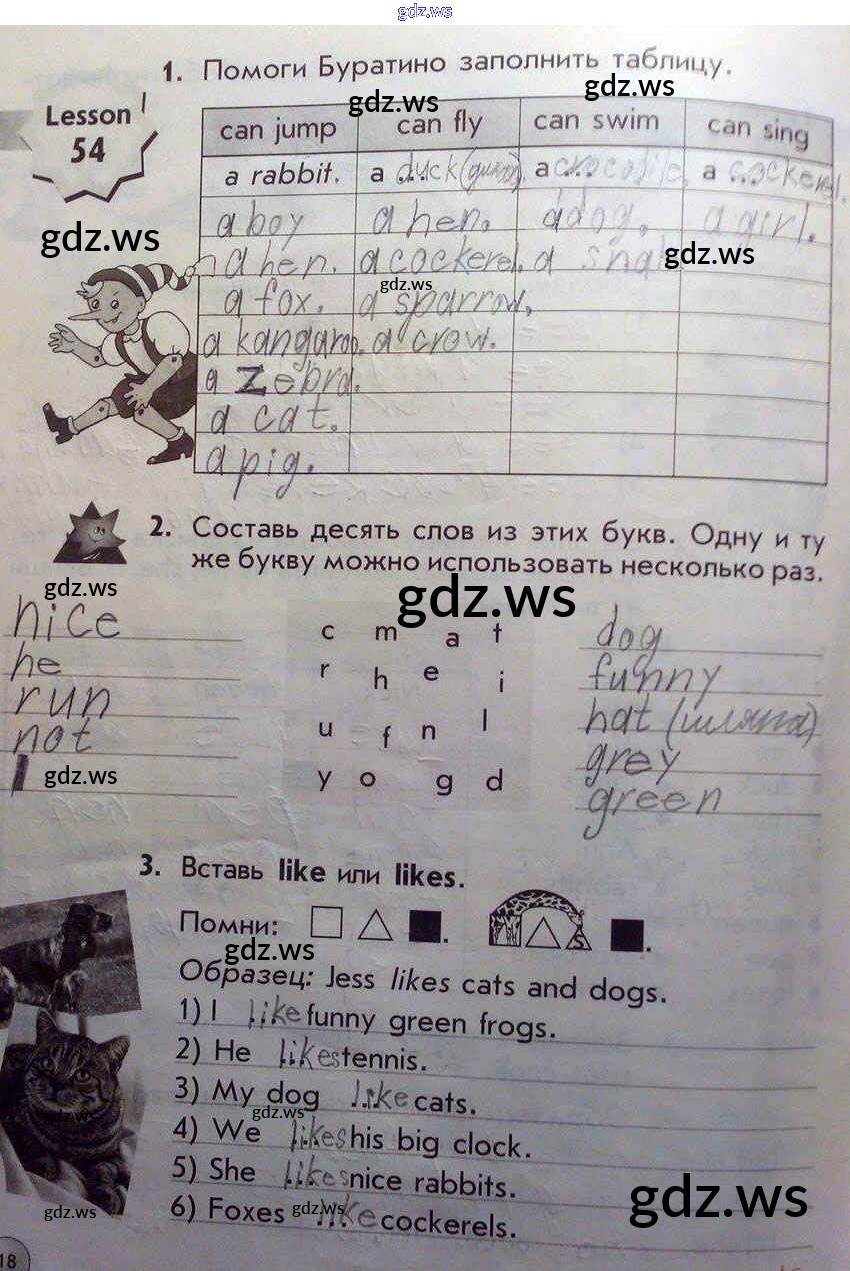 gdz.ws
1. Помоги Буратино заполнить таблицу.
gdz.ws gdz.ws
Lesson 54
can jump can fly can swim can sing
a rabbit. a duck (дикая). a crocodile. a cockerel.
a boy a hen. a dog. a girl.
gdz.ws gdz.ws
a hen. a cockerel. a
gdz.ws
a fox. a sparrow.
a kangaroo. a crow.
a zebra.
a cat.
a pig.
2. Составь десять слов из этих букв. Одну и ту
же букву можно использовать несколько раз.
gdz.ws gdz.ws
nice c m a t dog
he r h e i funny
run u f n l hat (шляпа)
not y o g d grey
gdz.ws green
3. Вставь like или likes.
Помни: . S .
gdz.ws
Образец: Jess likes cats and dogs.
1) I like funny green frogs.
2) He likes tennis.
3) My dog like cats.
gdz.ws
4) We likes his big clock.
5) She likes nice rabbits.
gdz.ws gdz.ws gdz.ws
6) Foxes like cockerels.
18